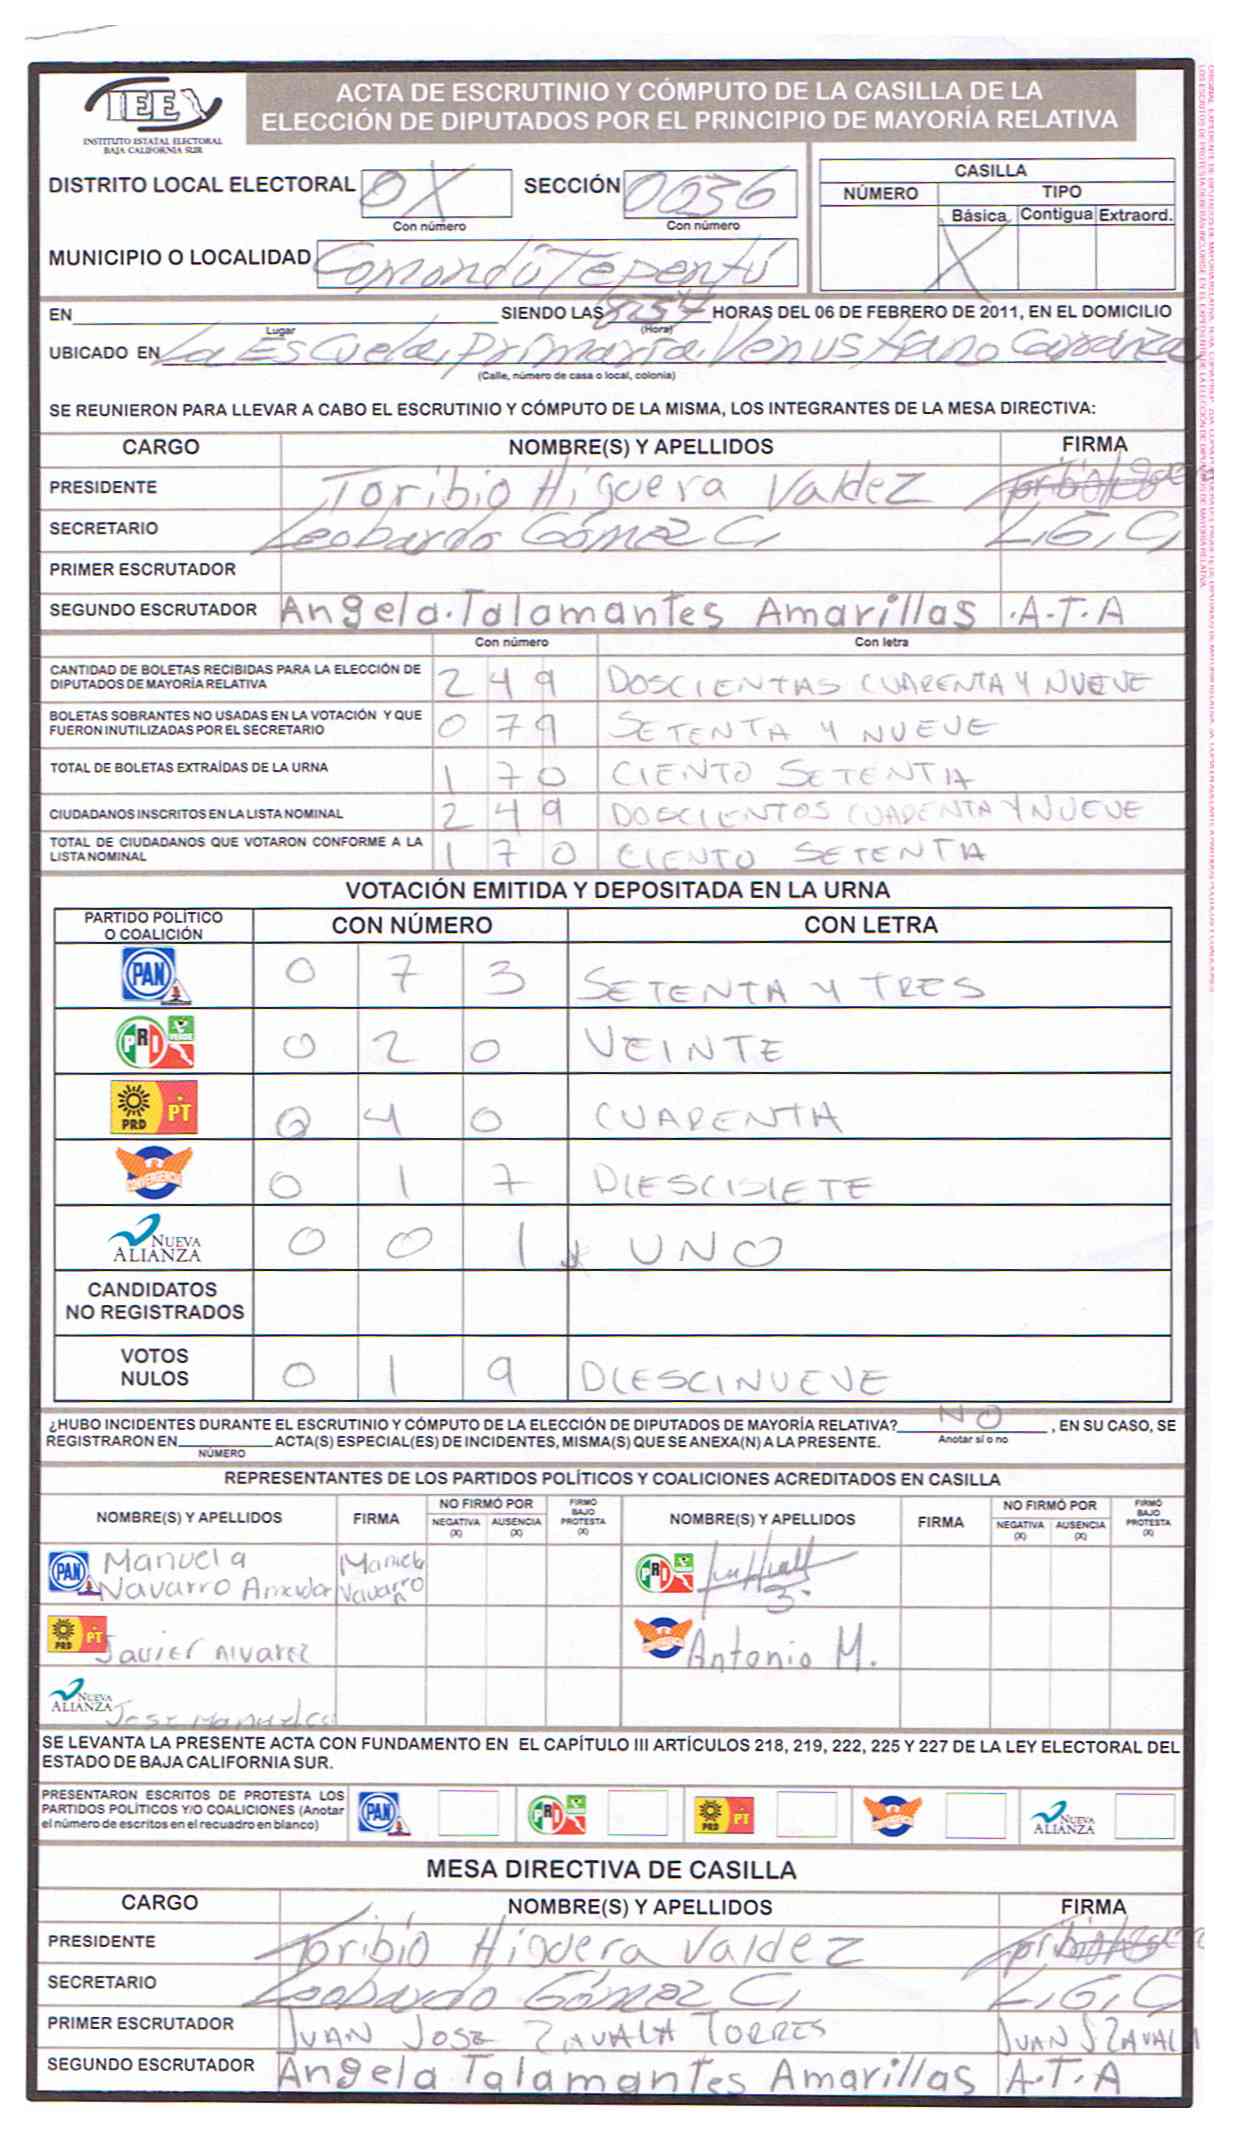 IEE
INSTITUTO ESTATAL ELECTORAL
BAJA CALIFORNIA SUR
ACTA DE ESCRUTINIO Y CÓMPUTO DE LA CASILLA DE LA
ELECCIÓN DE DIPUTADOS POR EL PRINCIPIO DE MAYORÍA RELATIVA
DISTRITO LOCAL ELECTORAL OX SECCIÓN 0036
Con número Con número
CASILLA
NÚMERO TIPO
Básica Contigua Extraord.
X
MUNICIPIO O LOCALIDAD Comondú Tepentú
EN SIENDO LAS 8:57 HORAS DEL 06 DE FEBRERO DE 2011, EN EL DOMICILIO
Lugar (Hora)
UBICADO EN La Escuela, Primaria. Venustiano Carranza
(Calle, número de casa o local, colonia)
SE REUNIERON PARA LLEVAR A CABO EL ESCRUTINIO Y CÓMPUTO DE LA MISMA, LOS INTEGRANTES DE LA MESA DIRECTIVA:
CARGO NOMBRE(S) Y APELLIDOS FIRMA
PRESIDENTE Toribio Higuera Valdez
SECRETARIO Leobardo Gómez C, L,G,C,
PRIMER ESCRUTADOR
SEGUNDO ESCRUTADOR Angela.Talamantes Amarillas .A.T.A
Con número Con letra
CANTIDAD DE BOLETAS RECIBIDAS PARA LA ELECCIÓN DE
DIPUTADOS DE MAYORÍA RELATIVA 2 4 9 DOSCIENTAS CUARENTA Y NUEVE
BOLETAS SOBRANTES NO USADAS EN LA VOTACIÓN Y QUE
FUERON INUTILIZADAS POR EL SECRETARIO 0 7 9 SETENTA Y NUEVE
TOTAL DE BOLETAS EXTRAÍDAS DE LA URNA 1 7 0 CIENTO SETENTA
CIUDADANOS INSCRITOS EN LA LISTA NOMINAL 2 4 9 DOSCIENTOS CUARENTA Y NUEVE
TOTAL DE CIUDADANOS QUE VOTARON CONFORME A LA
LISTA NOMINAL 1 7 0 CIENTO SETENTA
VOTACIÓN EMITIDA Y DEPOSITADA EN LA URNA
PARTIDO POLÍTICO
O COALICIÓN CON NÚMERO CON LETRA
PAN 0 7 3 SETENTA Y TRES
PRI VERDE 0 2 0 VEINTE
PRD PT 0 4 0 CUARENTA
CONVERGENCIA 0 1 7 DIESCISIETE
NUEVA ALIANZA 0 0 1 UNO
CANDIDATOS
NO REGISTRADOS
VOTOS
NULOS 0 1 9 DIESCINUEVE
¿HUBO INCIDENTES DURANTE EL ESCRUTINIO Y CÓMPUTO DE LA ELECCIÓN DE DIPUTADOS DE MAYORÍA RELATIVA? NO , EN SU CASO, SE
Anotar sí o no
REGISTRARON EN ACTA(S) ESPECIAL(ES) DE INCIDENTES, MISMA(S) QUE SE ANEXA(N) A LA PRESENTE.
NÚMERO
REPRESENTANTES DE LOS PARTIDOS POLÍTICOS Y COALICIONES ACREDITADOS EN CASILLA
NOMBRE(S) Y APELLIDOS FIRMA NO FIRMÓ POR NEGATIVA (X) AUSENCIA (X) FIRMÓ BAJO PROTESTA (X) NOMBRE(S) Y APELLIDOS FIRMA NO FIRMÓ POR NEGATIVA (X) AUSENCIA (X) FIRMÓ BAJO PROTESTA (X)
PAN Manuela Manuela PRI
Navarro Amador Navarro
PRD PT Javier Alvarez Antonio M.
NUEVA ALIANZA Jose Manuel
SE LEVANTA LA PRESENTE ACTA CON FUNDAMENTO EN EL CAPÍTULO III ARTÍCULOS 218, 219, 222, 225 Y 227 DE LA LEY ELECTORAL DEL
ESTADO DE BAJA CALIFORNIA SUR.
PRESENTARON ESCRITOS DE PROTESTA LOS
PARTIDOS POLÍTICOS Y/O COALICIONES (Anotar
el número de escritos en el recuadro en blanco) PAN PRI PRD PT NUEVA ALIANZA
MESA DIRECTIVA DE CASILLA
CARGO NOMBRE(S) Y APELLIDOS FIRMA
PRESIDENTE Toribio Higuera Valdez
SECRETARIO Leobardo Gómez C, L,G,C
PRIMER ESCRUTADOR JUAN JOSE ZAVALA TORRES JUAN J ZAVALA
SEGUNDO ESCRUTADOR Angela Talamantes Amarillas A.T.A